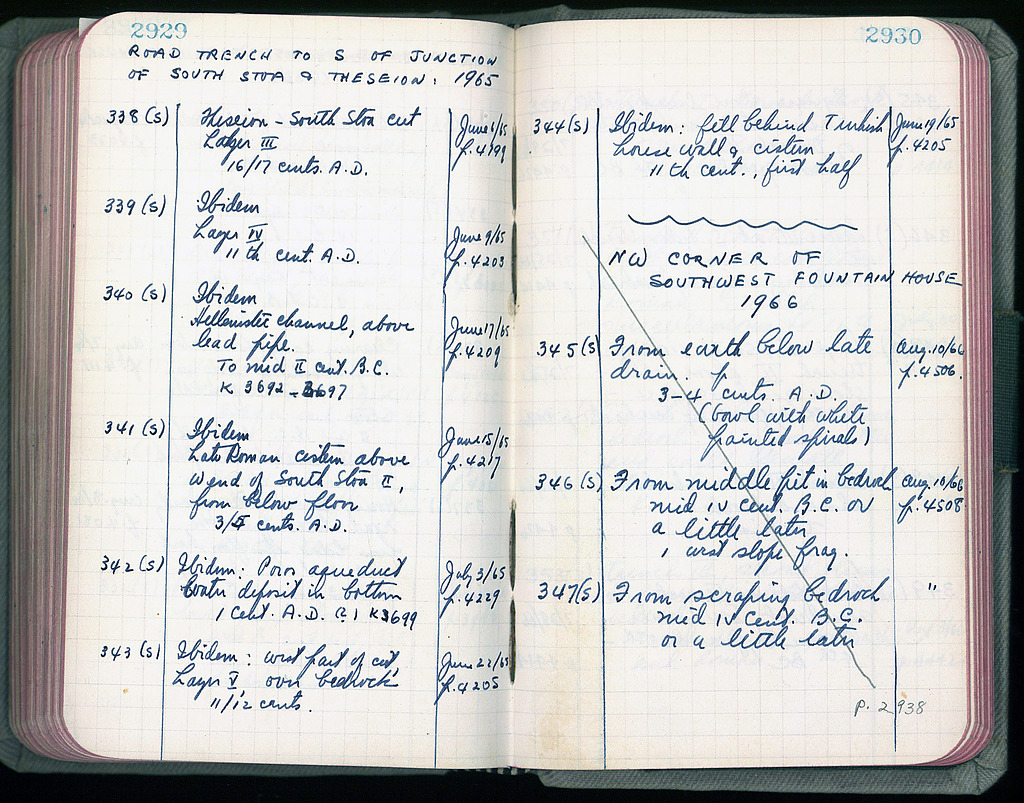 2929
ROAD TRENCH TO S OF JUNCTION
OF SOUTH STOA & THESEION: 1965
338 (S) Theseion - South Stoa cut June 1/65
Layer III p. 4199
16/17 cents. A.D.
339 (S) Ibidem
Layer IV June 9/65
11th cent. A.D. p. 4203
340 (S) Ibidem
Hellenistic channel, above June 17/65
lead pipe. p. 4209
To mid II cent. B.C.
K 3692 - 3697
341 (S) Ibidem June 15/65
Late Roman cistern above p. 4217
W end of South Stoa II,
from below floor
3/4 cents. A.D.
342 (S) Ibidem: Poros aqueduct July 3/65
water deposit in bottom p. 4229
1 cent. A.D. K3699
343 (S) Ibidem: west part of cut, June 22/65
Layer V over bedrock p. 4205
11/12 cents.
2930
344 (S) Ibidem: fill behind Turkish June 19/65
house wall & cistern p. 4205
11th cent., first half
NW CORNER OF
SOUTHWEST FOUNTAIN HOUSE
1966
345 (S) From earth below late Aug. 10/66
drain. p. 4506.
3-4 cents. A.D.
(bowl with white
painted spirals)
346 (S) From middle pit in bedrock Aug. 10/66
mid IV cent. B.C. or p. 4508.
a little later
1 west slope frag.
347 (S) From scraping bedrock "
mid IV cent. B.C.
or a little later
P. 2938